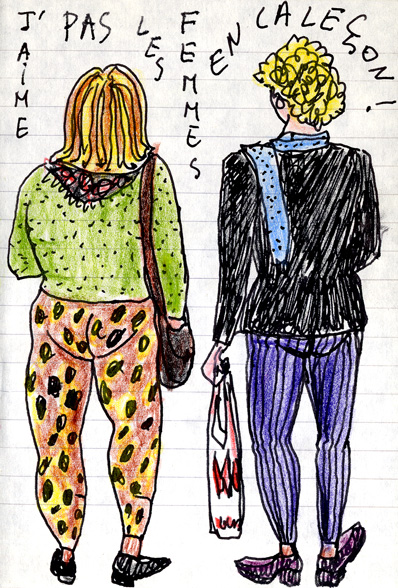 J'AIME PAS LES FEMMES EN CALEÇON !